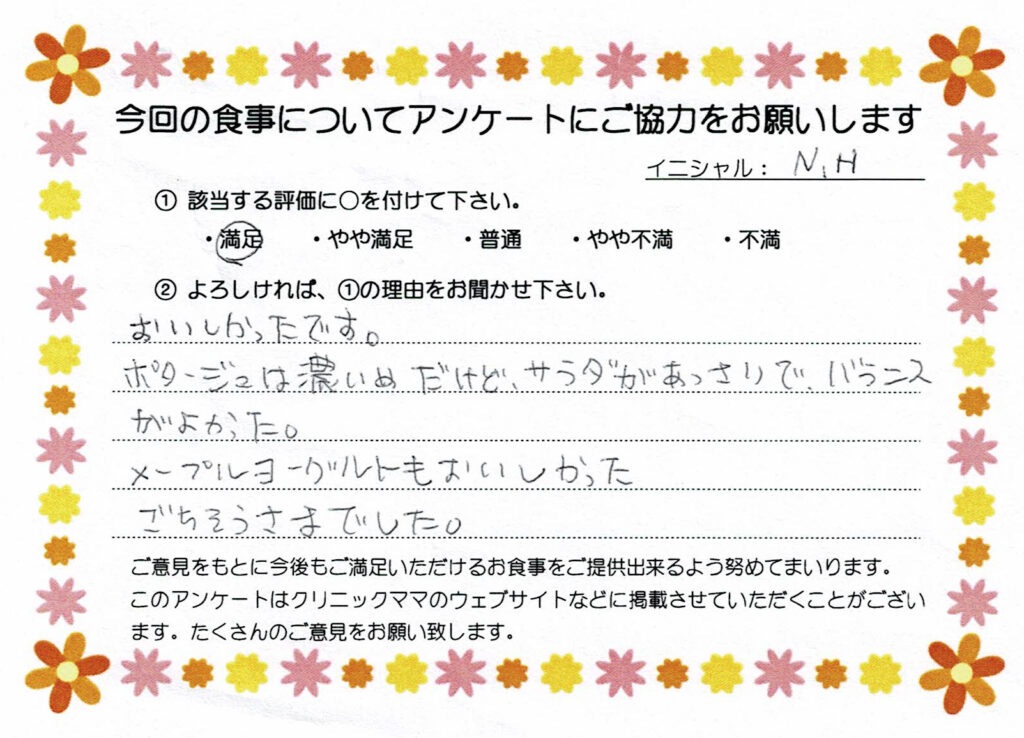 今回の食事についてアンケートにご協力をお願いします
イニシャル： N.H
① 該当する評価に○を付けて下さい。
・満足 ・やや満足 ・普通 ・やや不満 ・不満
② よろしければ、①の理由をお聞かせ下さい。
おいしかったです。
ポタージュは濃いめだけど、サラダがあっさりで、バランス
がよかった。
メープルヨーグルトもおいしかった
ごちそうさまでした。
ご意見をもとに今後もご満足いただけるお食事をご提供出来るよう努めてまいります。
このアンケートはクリニックママのウェブサイトなどに掲載させていただくことがござい
ます。たくさんのご意見をお願い致します。